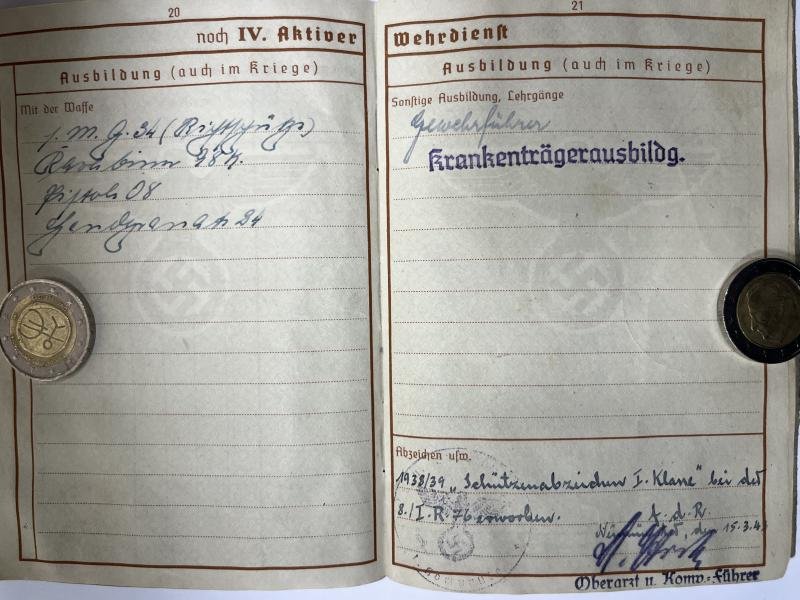 20
noch IV. Aktiver
Ausbildung (auch im Kriege)
Mit der Waffe
s. M. G. 34 (Richtschütze)
Karabiner 98k.
Pistole 08
Handgranate 24
21
Wehrdienst
Ausbildung (auch im Kriege)
Sonstige Ausbildung, Lehrgänge
Gewehrführer
Krankenträgerausbildg.
Abzeichen usw.
1938/39 „Schützenabzeichen I. Klasse" bei der
8./I.R. 76 erworben. F. d. R.
den 15.3.43
Oberarzt u. Komp.-Führer